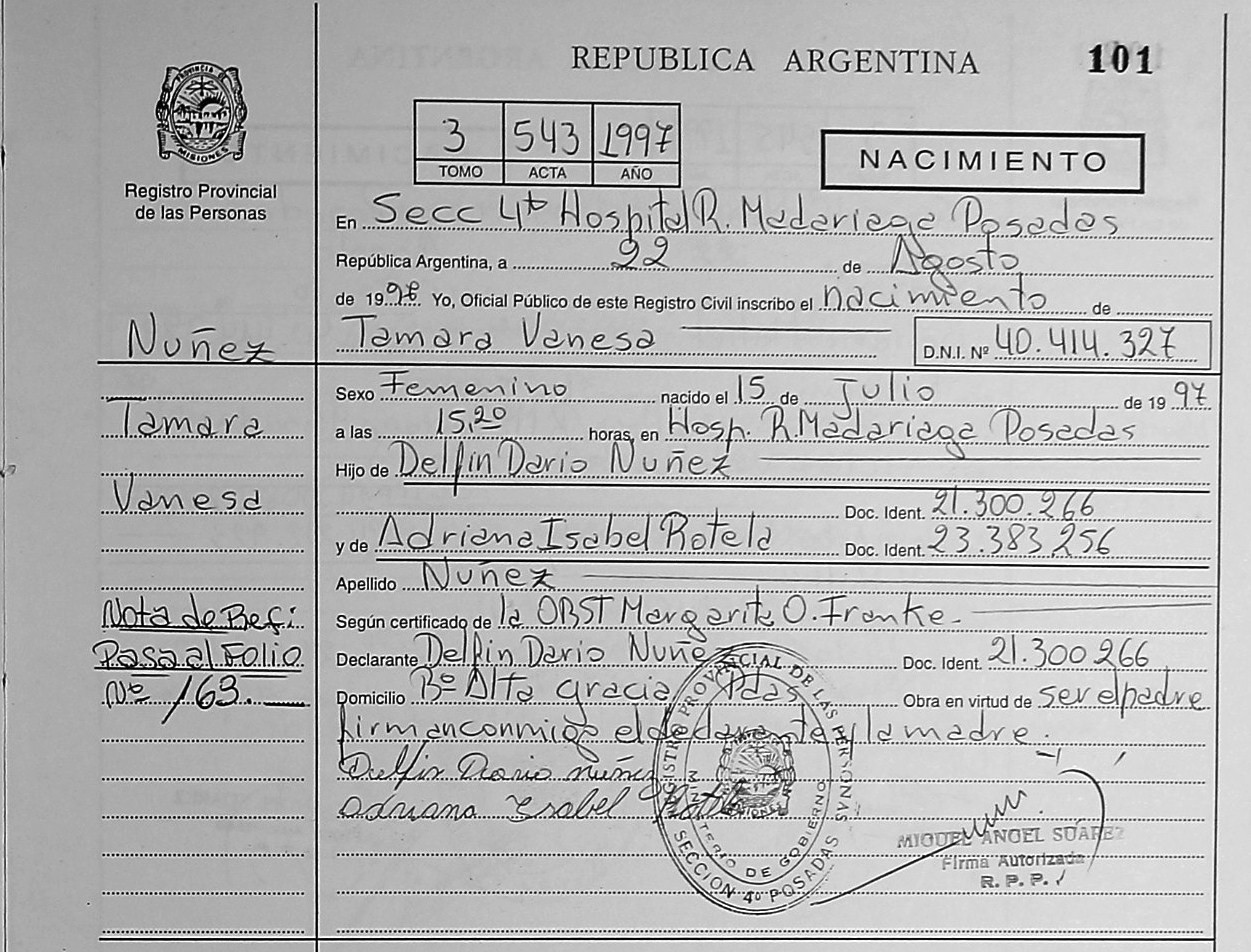 REPUBLICA ARGENTINA 101
PROVINCIA MISIONES
Registro Provincial
de las Personas
3 543 1997
TOMO ACTA AÑO
NACIMIENTO
En Secc 4ta Hospital R. Madariaga Posadas
República Argentina, a 22 de Agosto
de 1997 Yo, Oficial Público de este Registro Civil inscribo el nacimiento de
Nuñez Tamara Vanesa D.N.I. Nº 40.414.327
Sexo Femenino nacido el 15 de Julio de 1997
Tamara
a las 15,20 horas, en Hosp. R. Madariaga Posadas
Hijo de Delfin Dario Nuñez
Vanesa
Doc. Ident. 21.300.266
y de Adriana Isabel Rotela Doc. Ident. 23.383.256
Apellido Nuñez
Nota de Ref.
Según certificado de la OBST Margarita O. Franke-
Pasa al Folio
Declarante Delfin Dario Nuñez Doc. Ident. 21.300.266
Nº 163.
Domicilio Bº Alta gracia Pdas Obra en virtud de ser el padre
firman conmigo el declarante y la madre.
Delfin Dario Nuñez
Adriana Ysabel Rotela
REGISTRO PROVINCIAL DE LAS PERSONAS
MINISTERIO DE GOBIERNO
SECCION 4º POSADAS
MIGUEL ANGEL SUAREZ
Firma Autorizada
R. P. P.